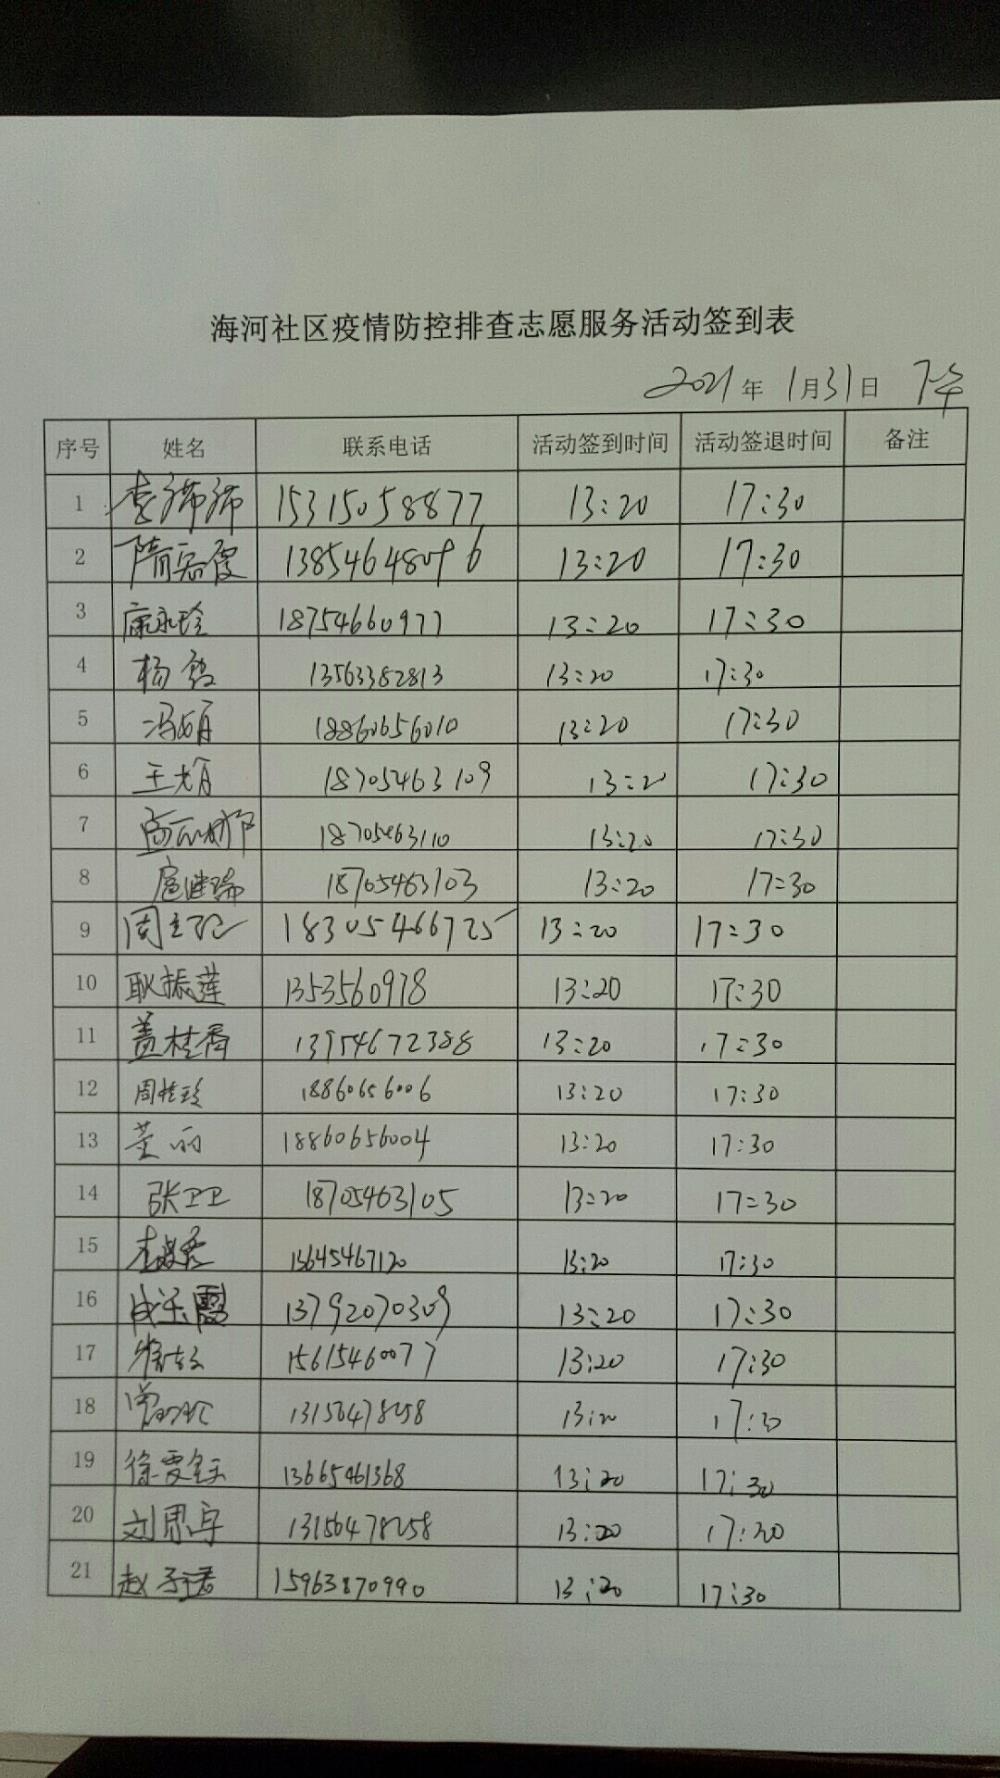 海河社区疫情防控排查志愿服务活动签到表
2021年 1月31日 下午
序号 姓名 联系电话 活动签到时间 活动签退时间 备注
1 李沛沛 15315058877 13:20 17:30
2 隋宏霞 13854648096 13:20 17:30
3 康永玲 18754660977 13:20 17:30
4 杨 13563382813 13:20 17:30
5 冯娟 18860656010 13:20 17:30
6 王娟 18705463109 13:20 17:30
7 18705463110 13:20 17:30
8 扈继瑞 18705463103 13:20 17:30
9 周 18305466725 13:20 17:30
10 耿振莲 1353560978 13:20 17:30
11 盖桂香 13954672388 13:20 17:30
12 周桂珍 18860656006 13:20 17:30
13 董丽 18860656004 13:20 17:30
14 张卫卫 18705463105 13:20 17:30
15 李 13645467120 13:20 17:30
16 成玉霞 13792070309 13:20 17:30
17 15615460077 13:20 17:30
18 13156478258 13:20 17:30
19 徐雯钰 13665461368 13:20 17:30
20 刘思宇 13156478258 13:20 17:30
21 赵子珺 15963870990 13:20 17:30